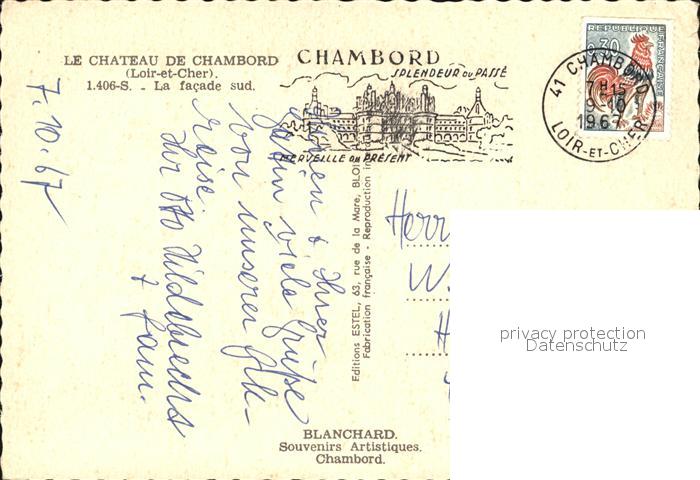 LE CHATEAU DE CHAMBORD
(Loir-et-Cher).
1.406-S. - La façade sud.
CHAMBORD
SPLENDEUR DU PASSÉ
MERVEILLE DU PRÉSENT
REPUBLIQUE
FRANÇAISE
0,30
41 CHAMBORD
7H15
9-10
1967
LOIR-ET-CHER
7.10.67
Ihnen & Ihrer
viele Grüße
von unserer
reise.
Ihr Otto
& Fam.
Editions ESTEL, 63, rue de la Mare, BLOI
Fabrication française - Reproduction in
Herr
W.
H
privacy protection
Datenschutz
BLANCHARD.
Souvenirs Artistiques.
Chambord.